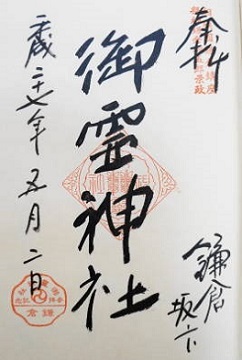 奉拝
鎌倉
坂下
御霊神社
平成二十七年五月二日
鎌倉